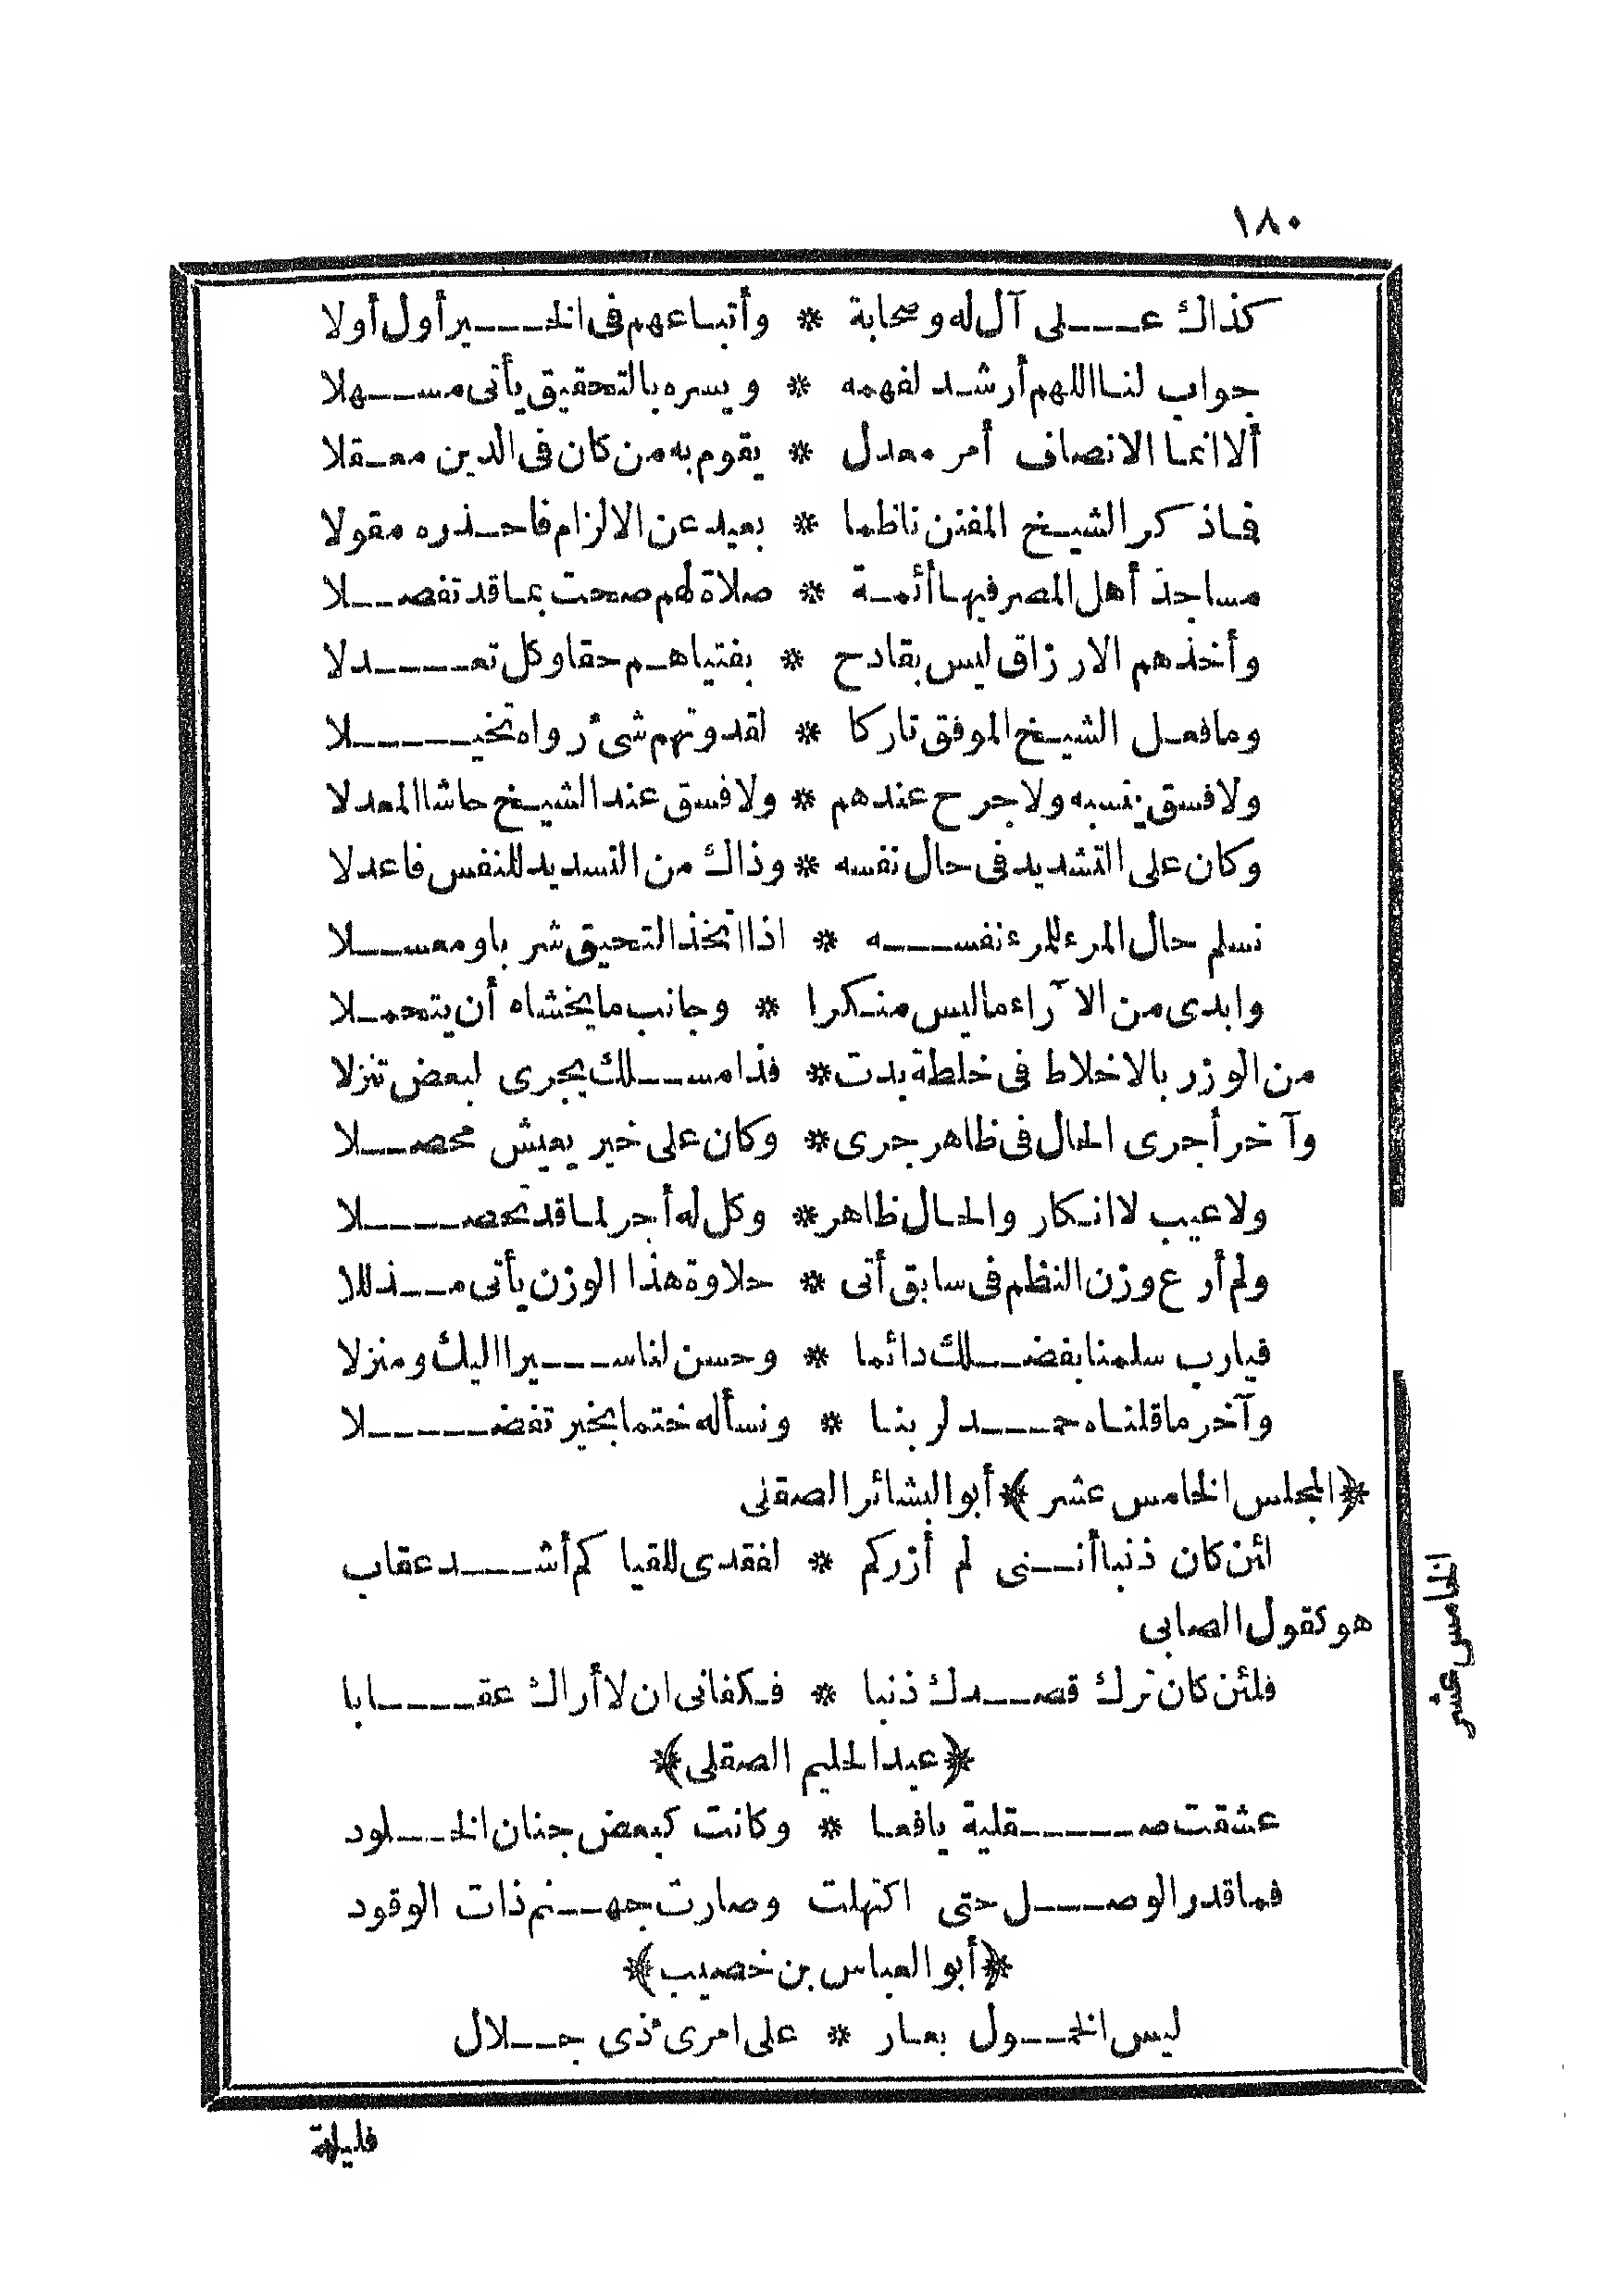 ١٨٠
كذاك على آل له وصحابة * وأتباعهم فى الخير أول أولا
جواب لنا اللهم أرشد لفهمه * ويسره بالتحقيق يأتى مسهلا
ألا انما الانصاف أمر معدل * يقوم به من كان فى الدين معقلا
فاذكر الشيخ المفنن ناظما * بعيد عن الالزام فاحذره مقولا
مساجد أهل المصر فيها أئمة * صلاة لهم صحت بما قد تفصلا
وأخذهم الارزاق ليس بقادح * بفتياهم حقا وكل تعدلا
وما فعل الشيخ الموفق تاركا * لقدوتهم شئ رواه تخيلا
ولا فسق ينسبه ولا جرح عندهم * ولا فسق عند الشيخ حاشا المعدلا
وكان على التشديد فى حال نفسه * وذاك من التسديد للنفس فاعدلا
نسلم حال المرء للمرء نفسه * اذا اتخذ التحيق شربا ومعسلا
وابدى من الآراء ما ليس منكرا * وجانب ما يخشاه أن يتحملا
من الوزر بالاخلاط فى خلطة بدت * فذا مسلك يجرى لبعض تنزلا
وآخر أجرى الحال فى ظاهر جرى * وكان على خير يعيش محصلا
ولا عيب لا انكار والحال ظاهر * وكل له أجر لما قد تحصلا
ولم أر ع وزن النظم فى سابق أتى * حلاوة هذا الوزن يأتى مذللا
فيارب سلمنا بفضلك دائما * وحسن لنا سيرا اليك ومنزلا
وآخر ما قلناه حمد لربنا * ونسأله ختما بخير تفضلا
﴿المجلس الخامس عشر﴾ أبو البشائر الصقلى
ائن كان ذنبا أننى لم أزركم * لفقدى للقياكم أشد عقاب
هو كقول الصابى
فلئن كان ترك قصدك ذنبا * فكفانى ان لا أراك عقابا
﴿عبد الحليم الصقلى﴾
عشقت صقلية يافعا * وكانت كبعض جنان الخلود
فما قدر الوصل حتى اكتهلت وصارت جهنم ذات الوقود
﴿أبو العباس بن خصيب﴾
ليس الخمول بعار * على امرئ ذى جلال
فليلة
الخامس عشر